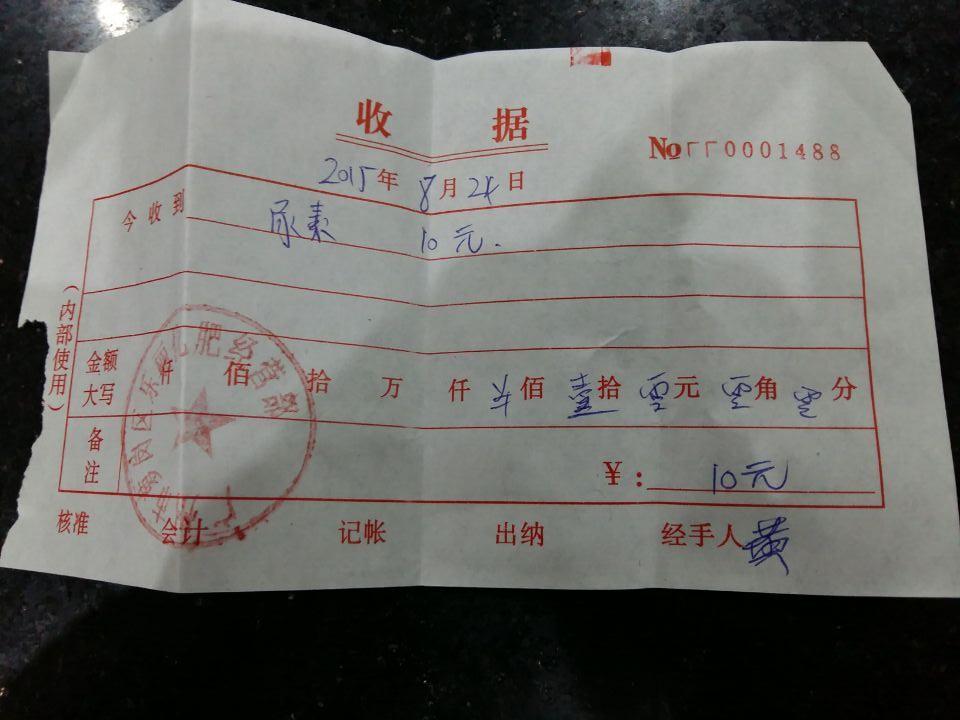 收 据
No ГГ0001488
2015年 8月 24日
今收到
尿素 10元.
(内部使用)
金额大写 仟 佰 拾 万 仟 半佰 壹拾 零元 零角 零分
备注
¥: 10元
核准 会计 记帐 出纳 经手人 黄
化肥经营部